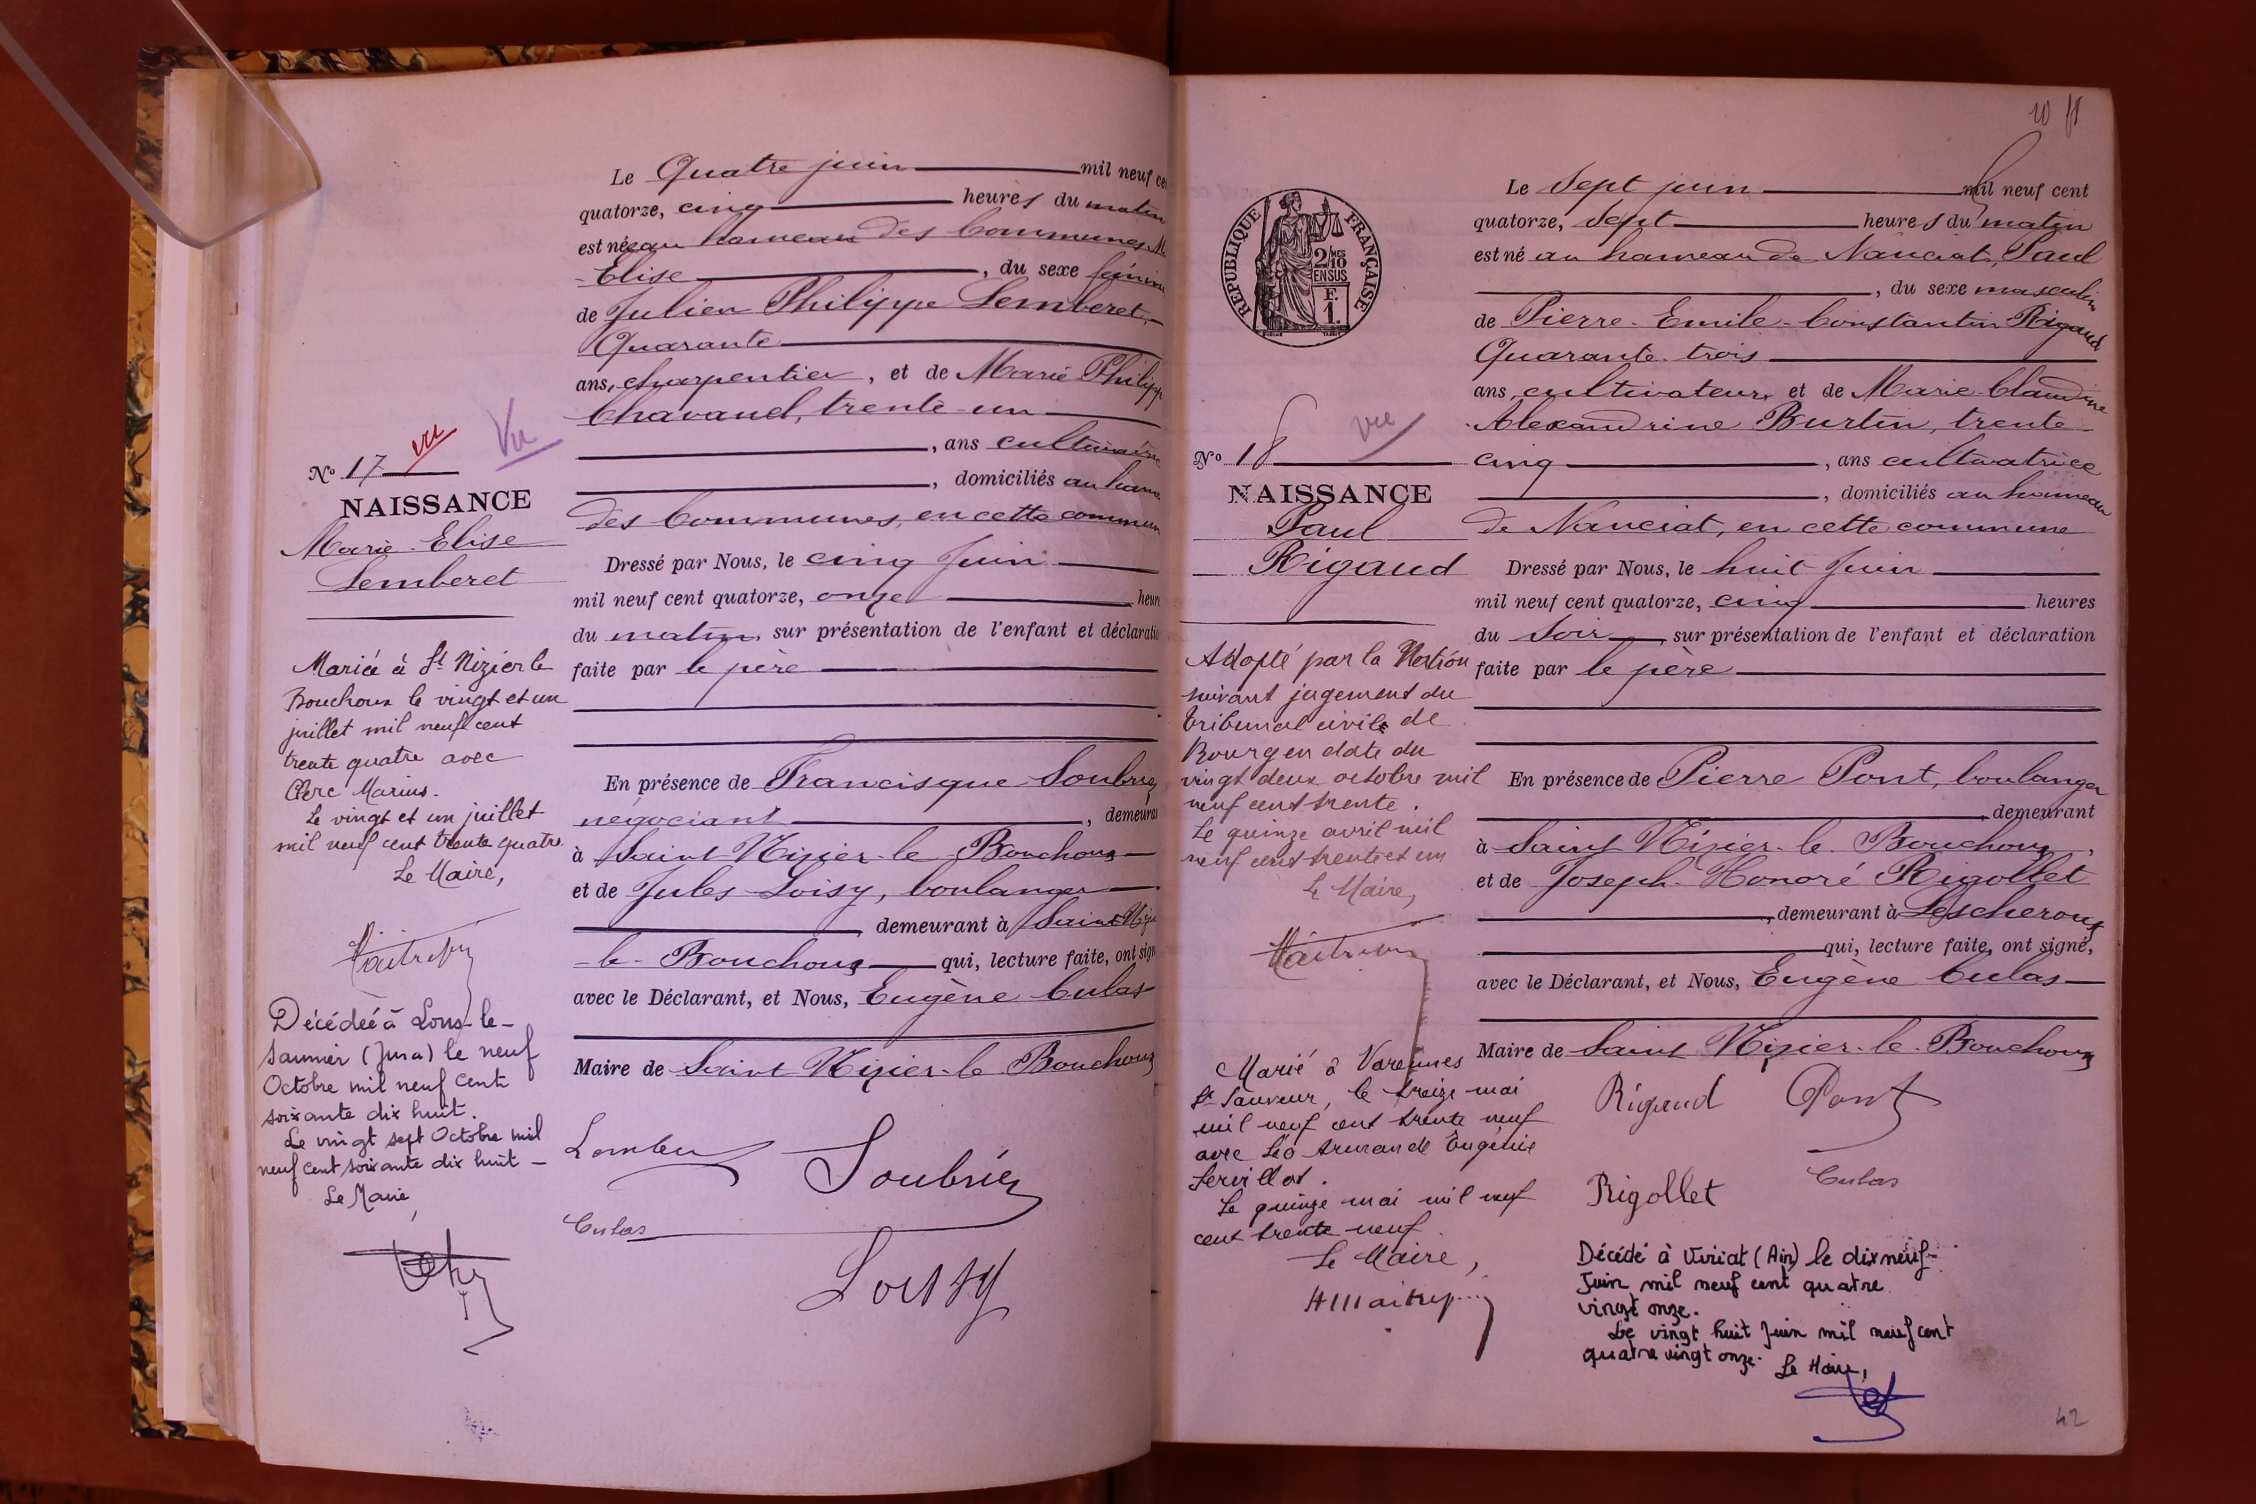 N° 17
vu
Vu
NAISSANCE
Marie-Elise
Lemberet
Mariée à St Nizier le
Bouchoux le vingt et un
juillet mil neuf cent
trente quatre avec
Clerc Marius.
Le vingt et un juillet
mil neuf cent trente quatre
Le Maire,
Décédée à Lons-le-
Saunier (Jura) le neuf
Octobre mil neuf cent
soixante dix huit.
Le vingt sept Octobre mil
neuf cent soixante dix huit -
Le Maire,
Le Quatre juin mil neuf
quatorze, cinq heures du matin
est née au hameau des Communes
-Elise, du sexe
de Julien Philippe Lemberet,
Quarante
ans, charpentier, et de Marie
Chavanel, trente-un
, ans
, domiciliés au
des Communes, en cette
Dressé par Nous, le cinq Juin
mil neuf cent quatorze, onze
du matin, sur présentation de l'enfant et
faite par le père
En présence de Francisque
négociant,
à Saint Nizier-le-Bouchoux
et de Jules Loisy, boulanger
, demeurant à Saint
-le-Bouchoux qui, lecture faite, ont
avec le Déclarant, et Nous, Eugène Culas
Maire de Saint Nizier-le Bouchoux
Soubriez
Culas
Loisy
10
RÉPUBLIQUE FRANÇAISE
2/10 MES
EN SUS
F.
1.
N° 18
vu
NAISSANCE
Paul
Rigaud
Adopté par la Nation
suivant jugement du
tribunal civil de
Bourg en date du
vingt deux octobre mil
neuf cent trente.
Le quinze avril mil
neuf cent trente et un
Le Maire,
Marié à Varennes
St Sauveur, le treize mai
mil neuf cent trente neuf
avec Léo Armande Eugénie
Servillat.
Le quinze mai mil neuf
cent trente neuf
Le Maire,
Le Sept juin mil neuf cent
quatorze, Sept heures du matin
est né au hameau de Nanciat, Paul
, du sexe masculin
de Pierre-Emile-Constantin Rigaud
Quarante-trois
ans, cultivateur, et de Marie-Claudine
Alexandrine Burtin, trente-
cinq, ans cultivatrice
, domiciliés au hameau
de Nanciat, en cette commune
Dressé par Nous, le huit Juin
mil neuf cent quatorze, cinq heures
du Soir, sur présentation de l'enfant et déclaration
faite par le père
En présence de Pierre Pont, boulanger
, demeurant
à Saint Nizier-le-Bouchoux,
et de Joseph-Honoré Rigollet
, demeurant à Lescheroux
qui, lecture faite, ont signé,
avec le Déclarant, et Nous, Eugène Culas
Maire de Saint Nizier-le-Bouchoux
Rigaud Pont
Rigollet Culas
Décédé à Viriat (Ain) le dix neuf
Juin mil neuf cent quatre
vingt onze.
Le vingt huit Juin mil neuf cent
quatre vingt onze. Le Maire,
42